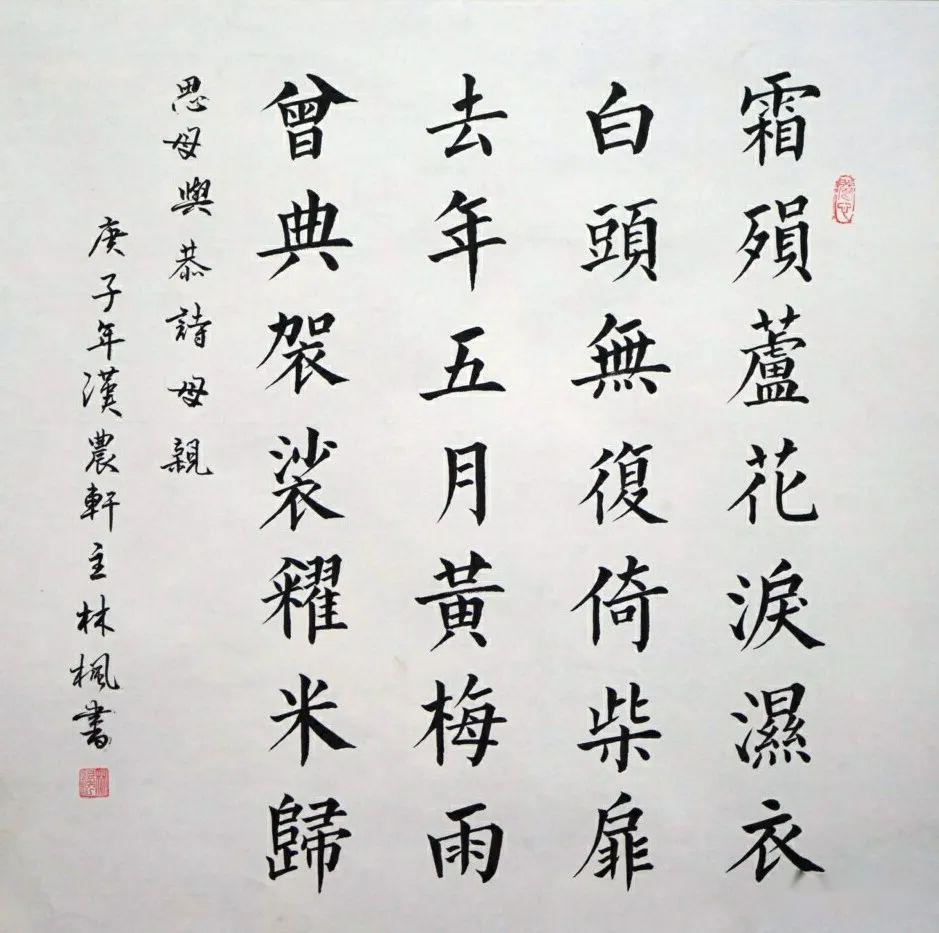 霜殞蘆花淚濕衣
白頭無復倚柴扉
去年五月黃梅雨
曾典袈裟糴米歸
思母與恭詩母親
庚子年漢農軒主林楓書